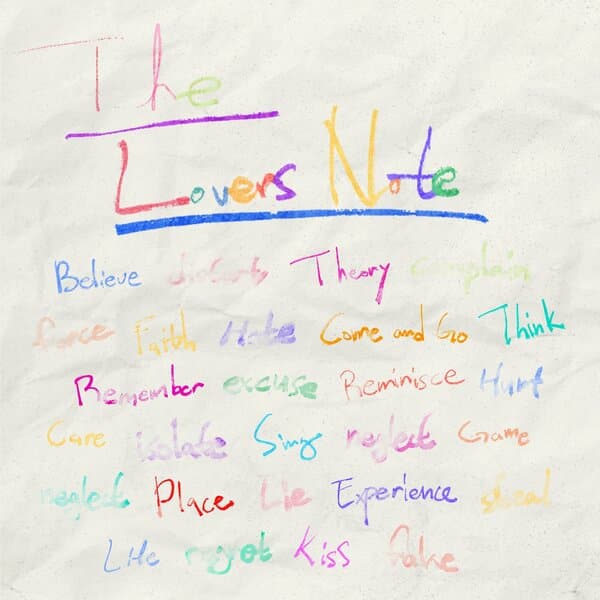 The
Lovers Note
Believe Theory complain
force Faith Hate Come and Go Think
Remember excuse Reminisce Hurt
Care isolate Sing neglect Game
neglect Place Lie Experience steal
Life regret Kiss fake